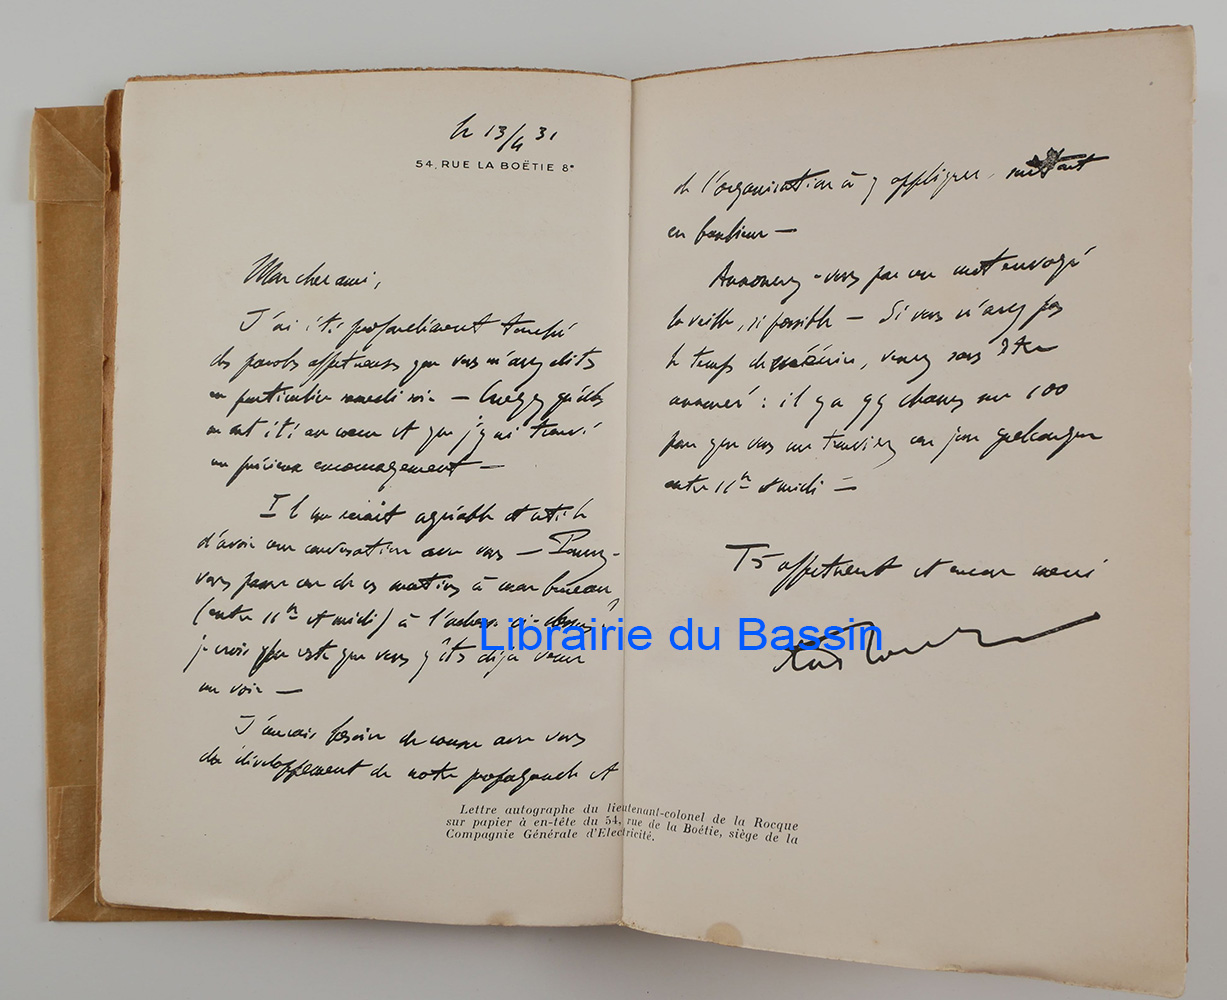 le 13/4 31
54, RUE LA BOËTIE 8e
Mon cher ami,
J'ai été profondément touché
des paroles affectueuses que vous m'avez dites
en particulier samedi soir — Croyez qu'elles
m'ont été au cœur et que j'y ai trouvé
un précieux encouragement —
Il me serait agréable et utile
d'avoir une conversation avec vous — Pouvez-
vous passer un de ces matins à mon bureau
(entre 11h et midi) à l'adresse ci-dessus?
je crois que vous y êtes déjà venu
me voir —
J'aurais besoin de causer avec vous
du développement de notre propagande et
de l'organisation à y appliquer, surtout
en banlieue —
Annoncez-vous par un mot envoyé
la veille, si possible — Si vous n'avez pas
le temps de prévenir, venez sans être
annoncé : il y a 99 chances sur 100
pour que vous me trouviez un jour quelconque
entre 11h et midi —
Ts affectueusement et encore merci
Librairie du Bassin
Lettre autographe du lieutenant-colonel de la Rocque
sur papier à en-tête du 54, rue de la Boétie, siège de la
Compagnie Générale d'Electricité.